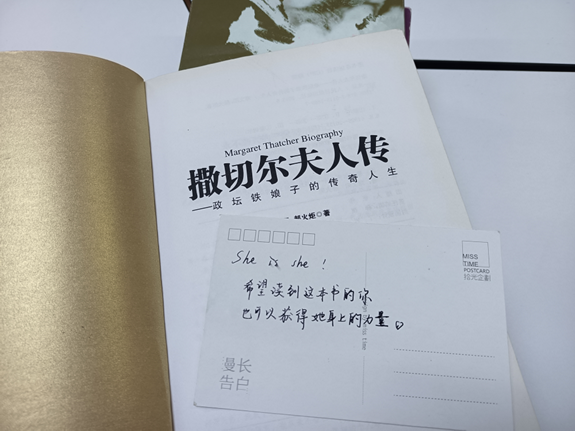 Margaret Thatcher Biography
撒切尔夫人传
——政坛铁娘子的传奇人生
郜火炬◎著
MISS
TIME
POSTCARD
拾光企划
She is she！
希望读到这本书的你
也可以获得她身上的力量。
漫长
告白